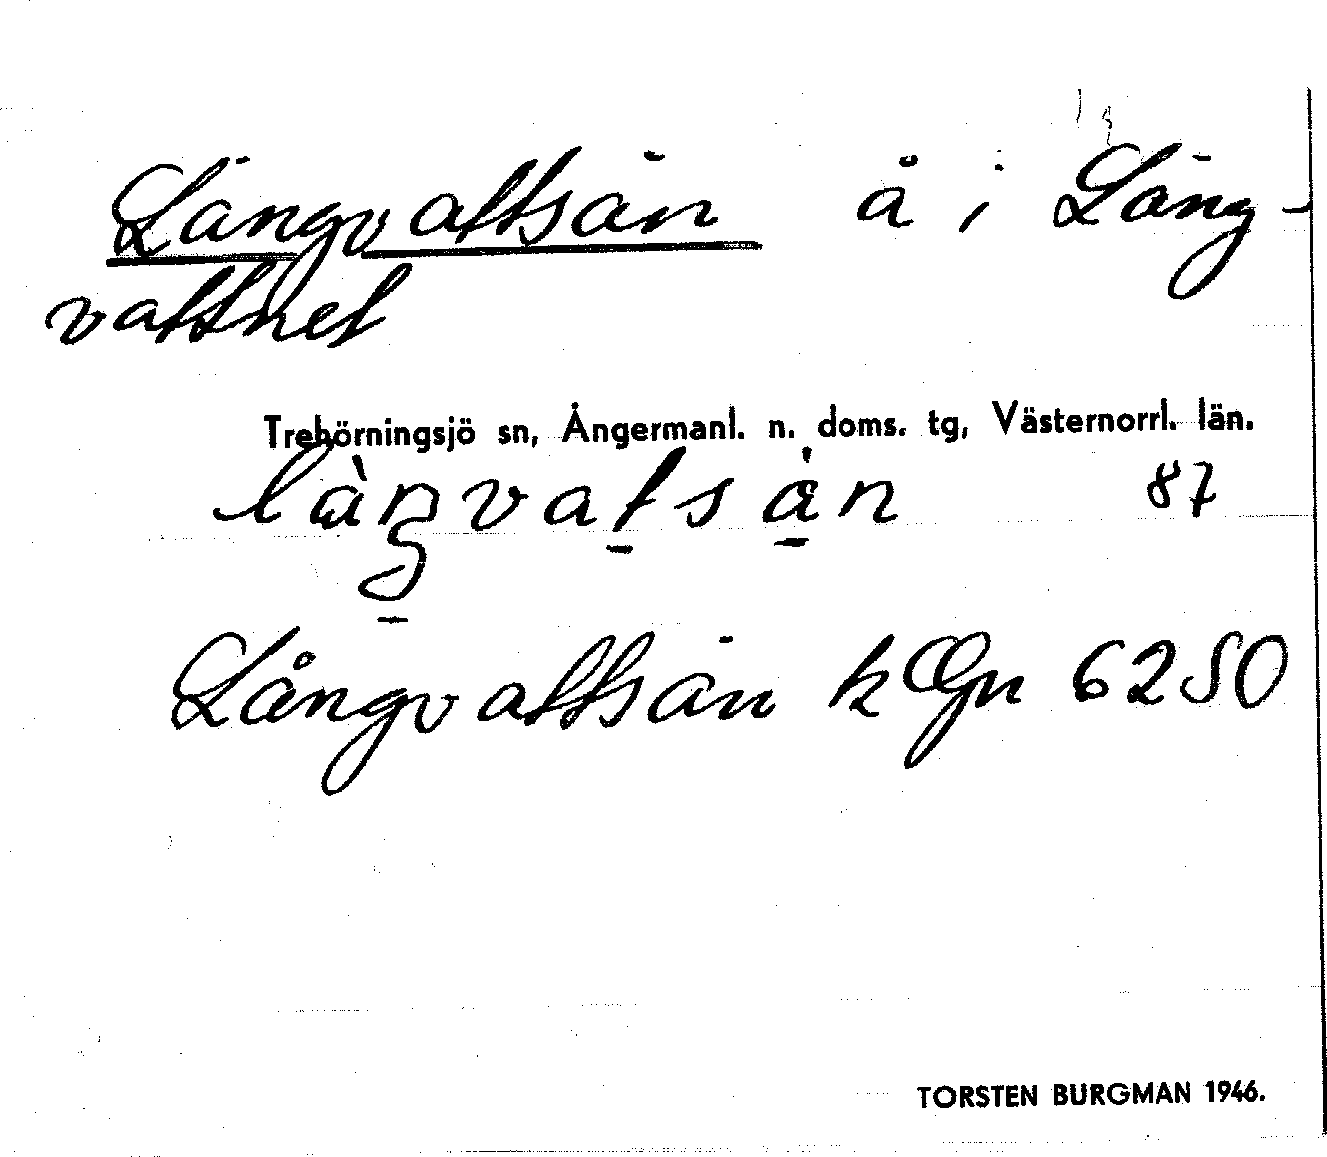 Långvattsån å i Lång-
vattnet
Trehörningsjö sn, Ångermanl. n. doms. tg, Västernorrl. län.
låŋvatsån 87
Långvattsån k Gn 6250
TORSTEN BURGMAN 1946.